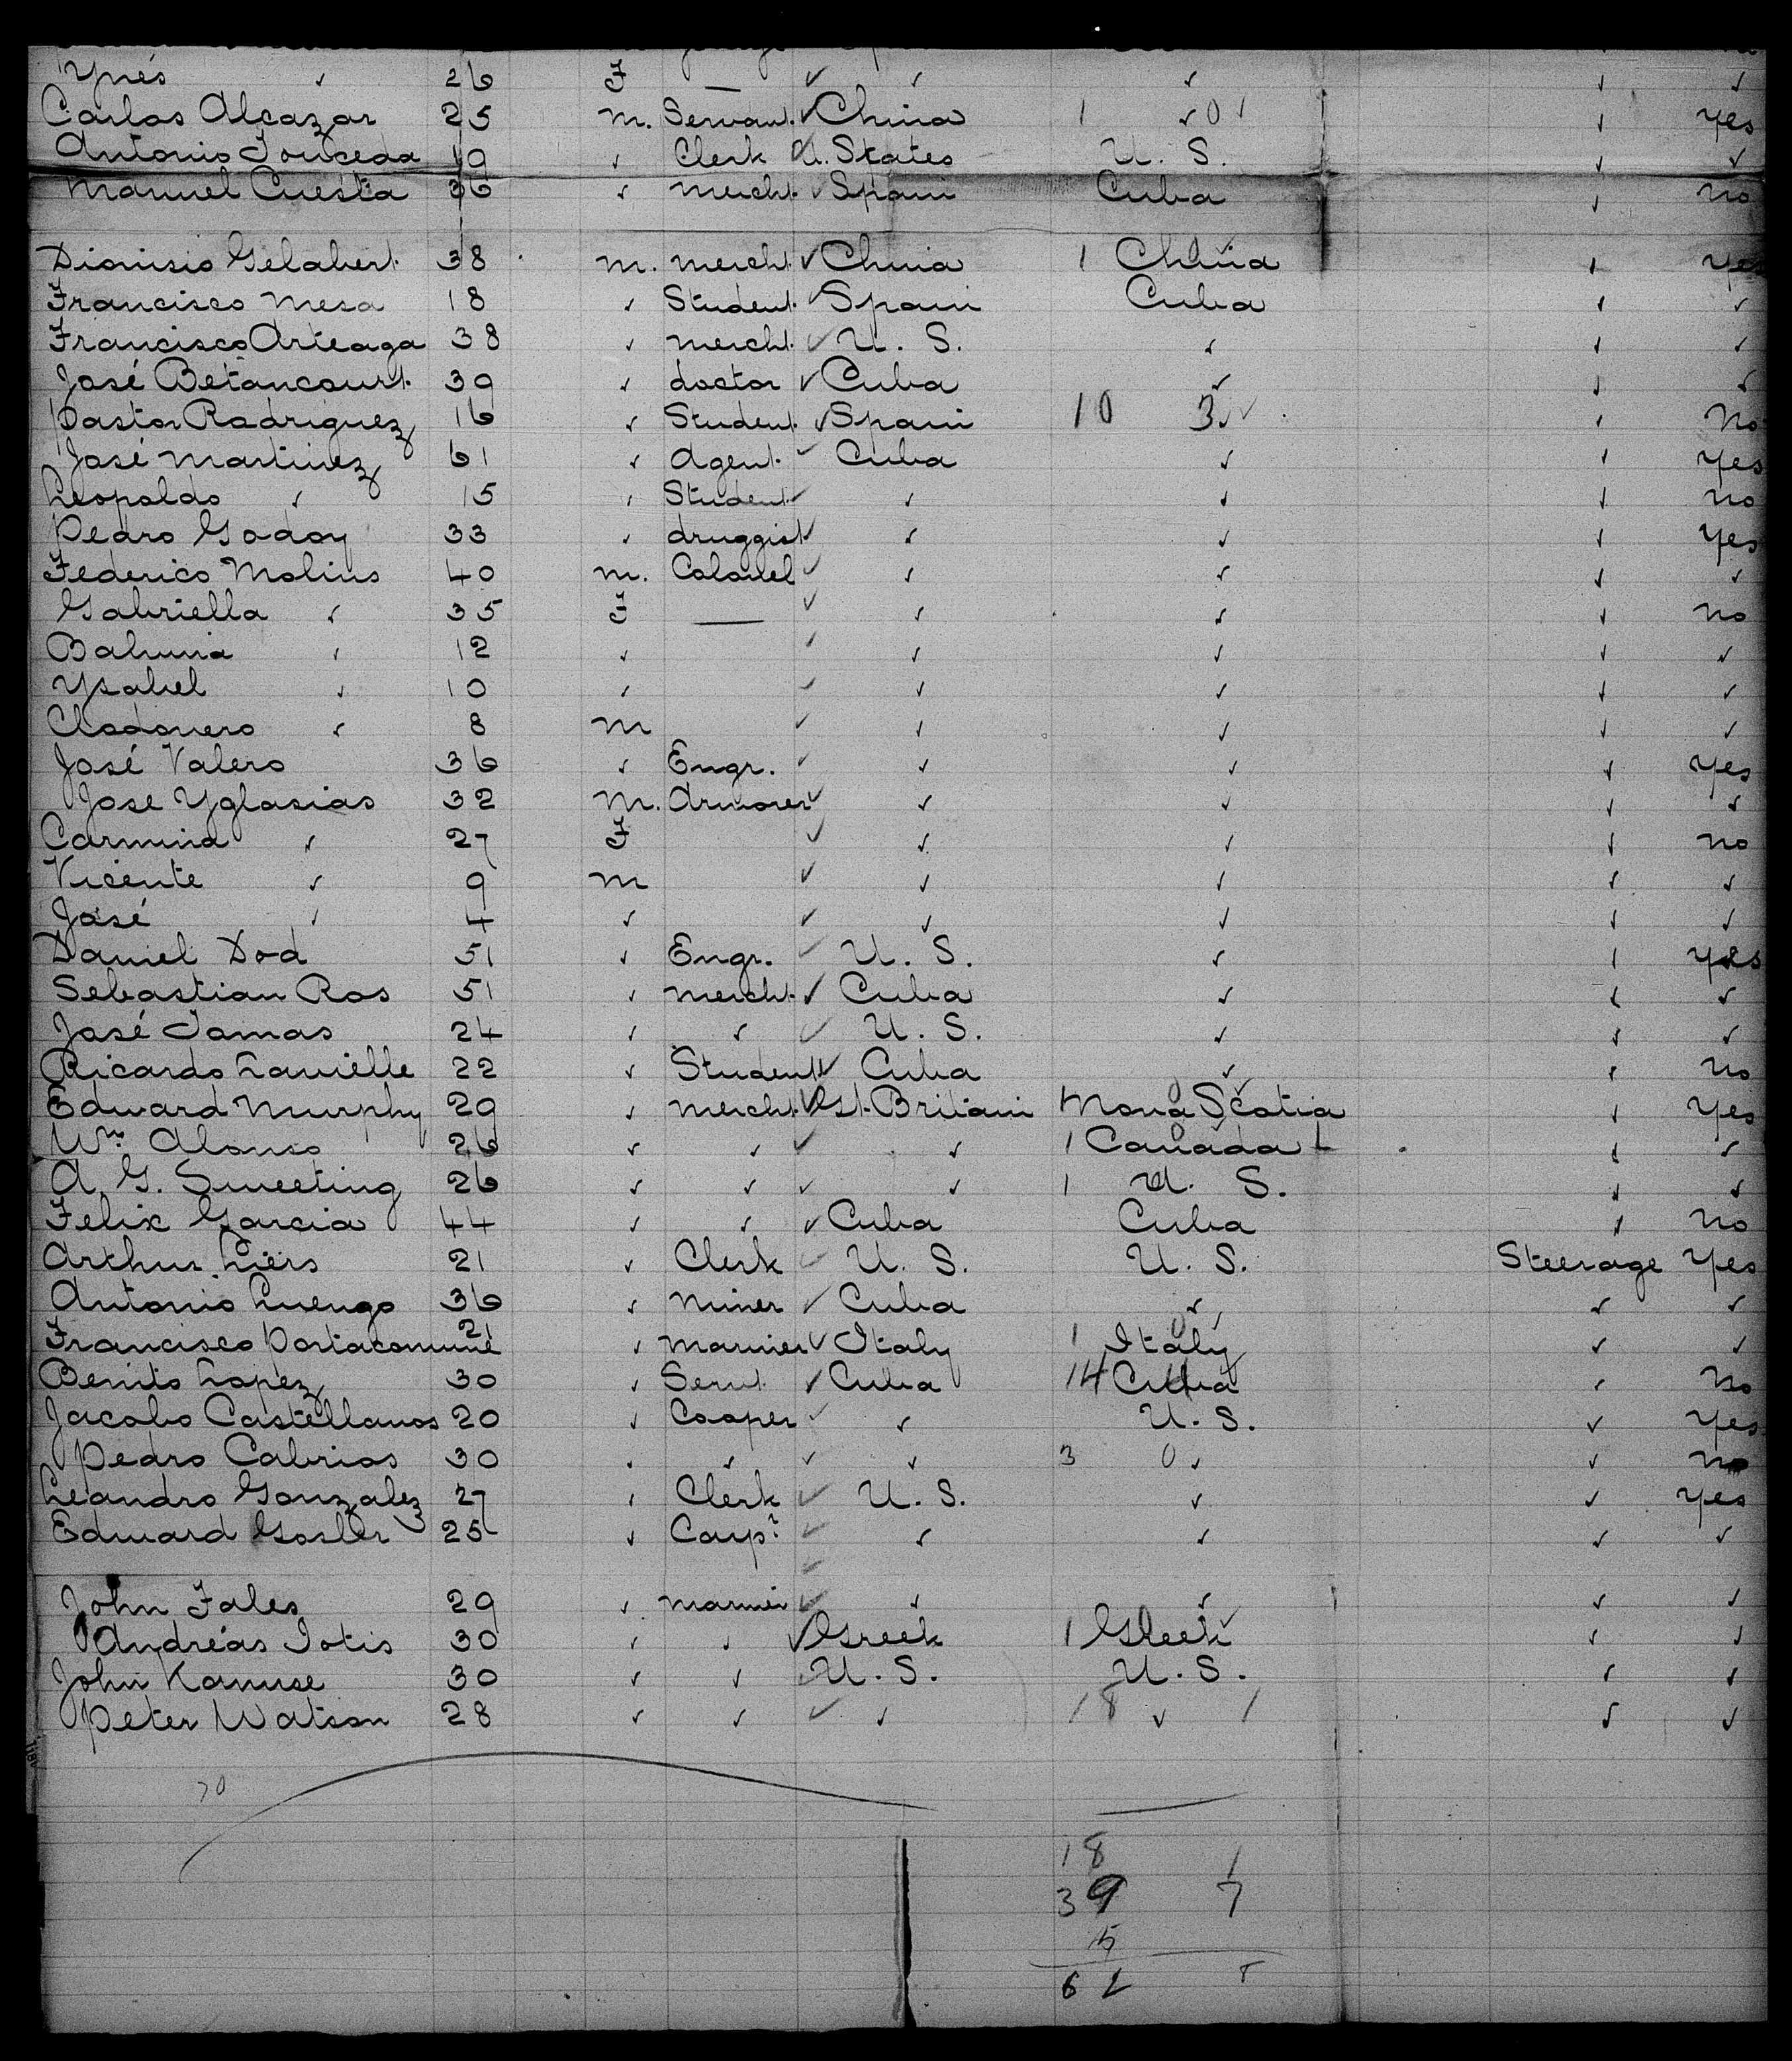 Ynés ✓ 26 F — ✓ ✓ ✓ ✓ ✓
Carlos Alcazar 25 m. Servant. ✓ China 1 ✓ 0 1 ✓ Yes
Antonio Touceda 19 ✓ Clerk U. States U. S. ✓ ✓
Manuel Cuesta 36 ✓ mercht. ✓ Spain Cuba ✓ no
Dionisio Gelabert. 38 m. mercht. ✓ China 1 China ✓ yes
Francisco Mesa 18 ✓ Student. ✓ Spain Cuba ✓ ✓
Francisco Arteaga 38 ✓ mercht. ✓ U. S. ✓ ✓ ✓
José Betancourt. 39 ✓ doctor ✓ Cuba ✓ ✓ ✓
Pastor Rodriguez 16 ✓ Student. ✓ Spain 10 3 ✓ ✓ ✓ No
José Martinez 61 ✓ Agent. ✓ Cuba ✓ ✓ Yes
Leopoldo ✓ 15 ✓ Student ✓ ✓ ✓ ✓ no
Pedro Godoy 33 ✓ druggist ✓ ✓ ✓ ✓ Yes
Federico Molins 40 m. Colonel ✓ ✓ ✓ ✓ ✓
Gabriella ✓ 35 F — ✓ ✓ ✓ ✓ no
✓ 12 ✓ ✓ ✓ ✓ ✓ ✓
Ysabel ✓ 10 ✓ ✓ ✓ ✓ ✓ ✓
Clodovero ✓ 8 m ✓ ✓ ✓ ✓ ✓
José Valero 36 ✓ Engr. ✓ ✓ ✓ ✓ Yes
Jose Yglasias 32 m. Armorer ✓ ✓ ✓ ✓ ✓
Carmina ✓ 27 F ✓ ✓ ✓ ✓ no
Vicente ✓ 9 m ✓ ✓ ✓ ✓ ✓
José ✓ 4 ✓ ✓ ✓ ✓ ✓ ✓
Daniel Dod 51 ✓ Engr. ✓ U. S. ✓ ✓ yes
Sebastian Ros 51 ✓ mercht. ✓ Cuba ✓ ✓ ✓
José Tamas 24 ✓ ✓ ✓ U. S. ✓ ✓ ✓
Ricardo Lavielle 22 ✓ Student ✓ Cuba ✓ ✓ no
Edward Murphy 29 ✓ mercht. ✓ Gt. Britain 1 Nova Scotia ✓ Yes
Wm. Alonso 26 ✓ ✓ ✓ ✓ 1 Canada ✓ ✓
A. G. Sweeting 26 ✓ ✓ ✓ ✓ 1 U. S. ✓ ✓
Felix Garcia 44 ✓ ✓ ✓ Cuba Cuba ✓ no
Arthur Liers 21 ✓ Clerk ✓ U. S. U. S. Steerage Yes
Antonio Luengo 36 ✓ Miner ✓ Cuba ✓ ✓ ✓
Francisco Portacomune 21 ✓ mariner ✓ Italy 1 Italy ✓ ✓
Benito Lopez 30 ✓ Servt. ✓ Cuba 14 Cuba 4 ✓ No
Jacobo Castellanos 20 ✓ Cooper ✓ ✓ U. S. ✓ Yes
Pedro Cabrias 30 ✓ ✓ ✓ ✓ 3 0 ✓ ✓ no
Leandro Gonzalez 27 ✓ Clerk ✓ U. S. ✓ ✓ yes
Edward 25 ✓ Carpr. ✓ ✓ ✓ ✓ ✓
John Fales 29 ✓ mariner ✓ ✓ ✓ ✓ ✓
Andréas Iotis 30 ✓ ✓ ✓ Greek 1 Greek ✓ ✓ ✓
John Kanuse 30 ✓ ✓ U. S. U. S. ✓ ✓
Peter Watson 28 ✓ ✓ ✓ ✓ 18 ✓ 1 ✓ ✓
70
18 1
39 7
5
62 8